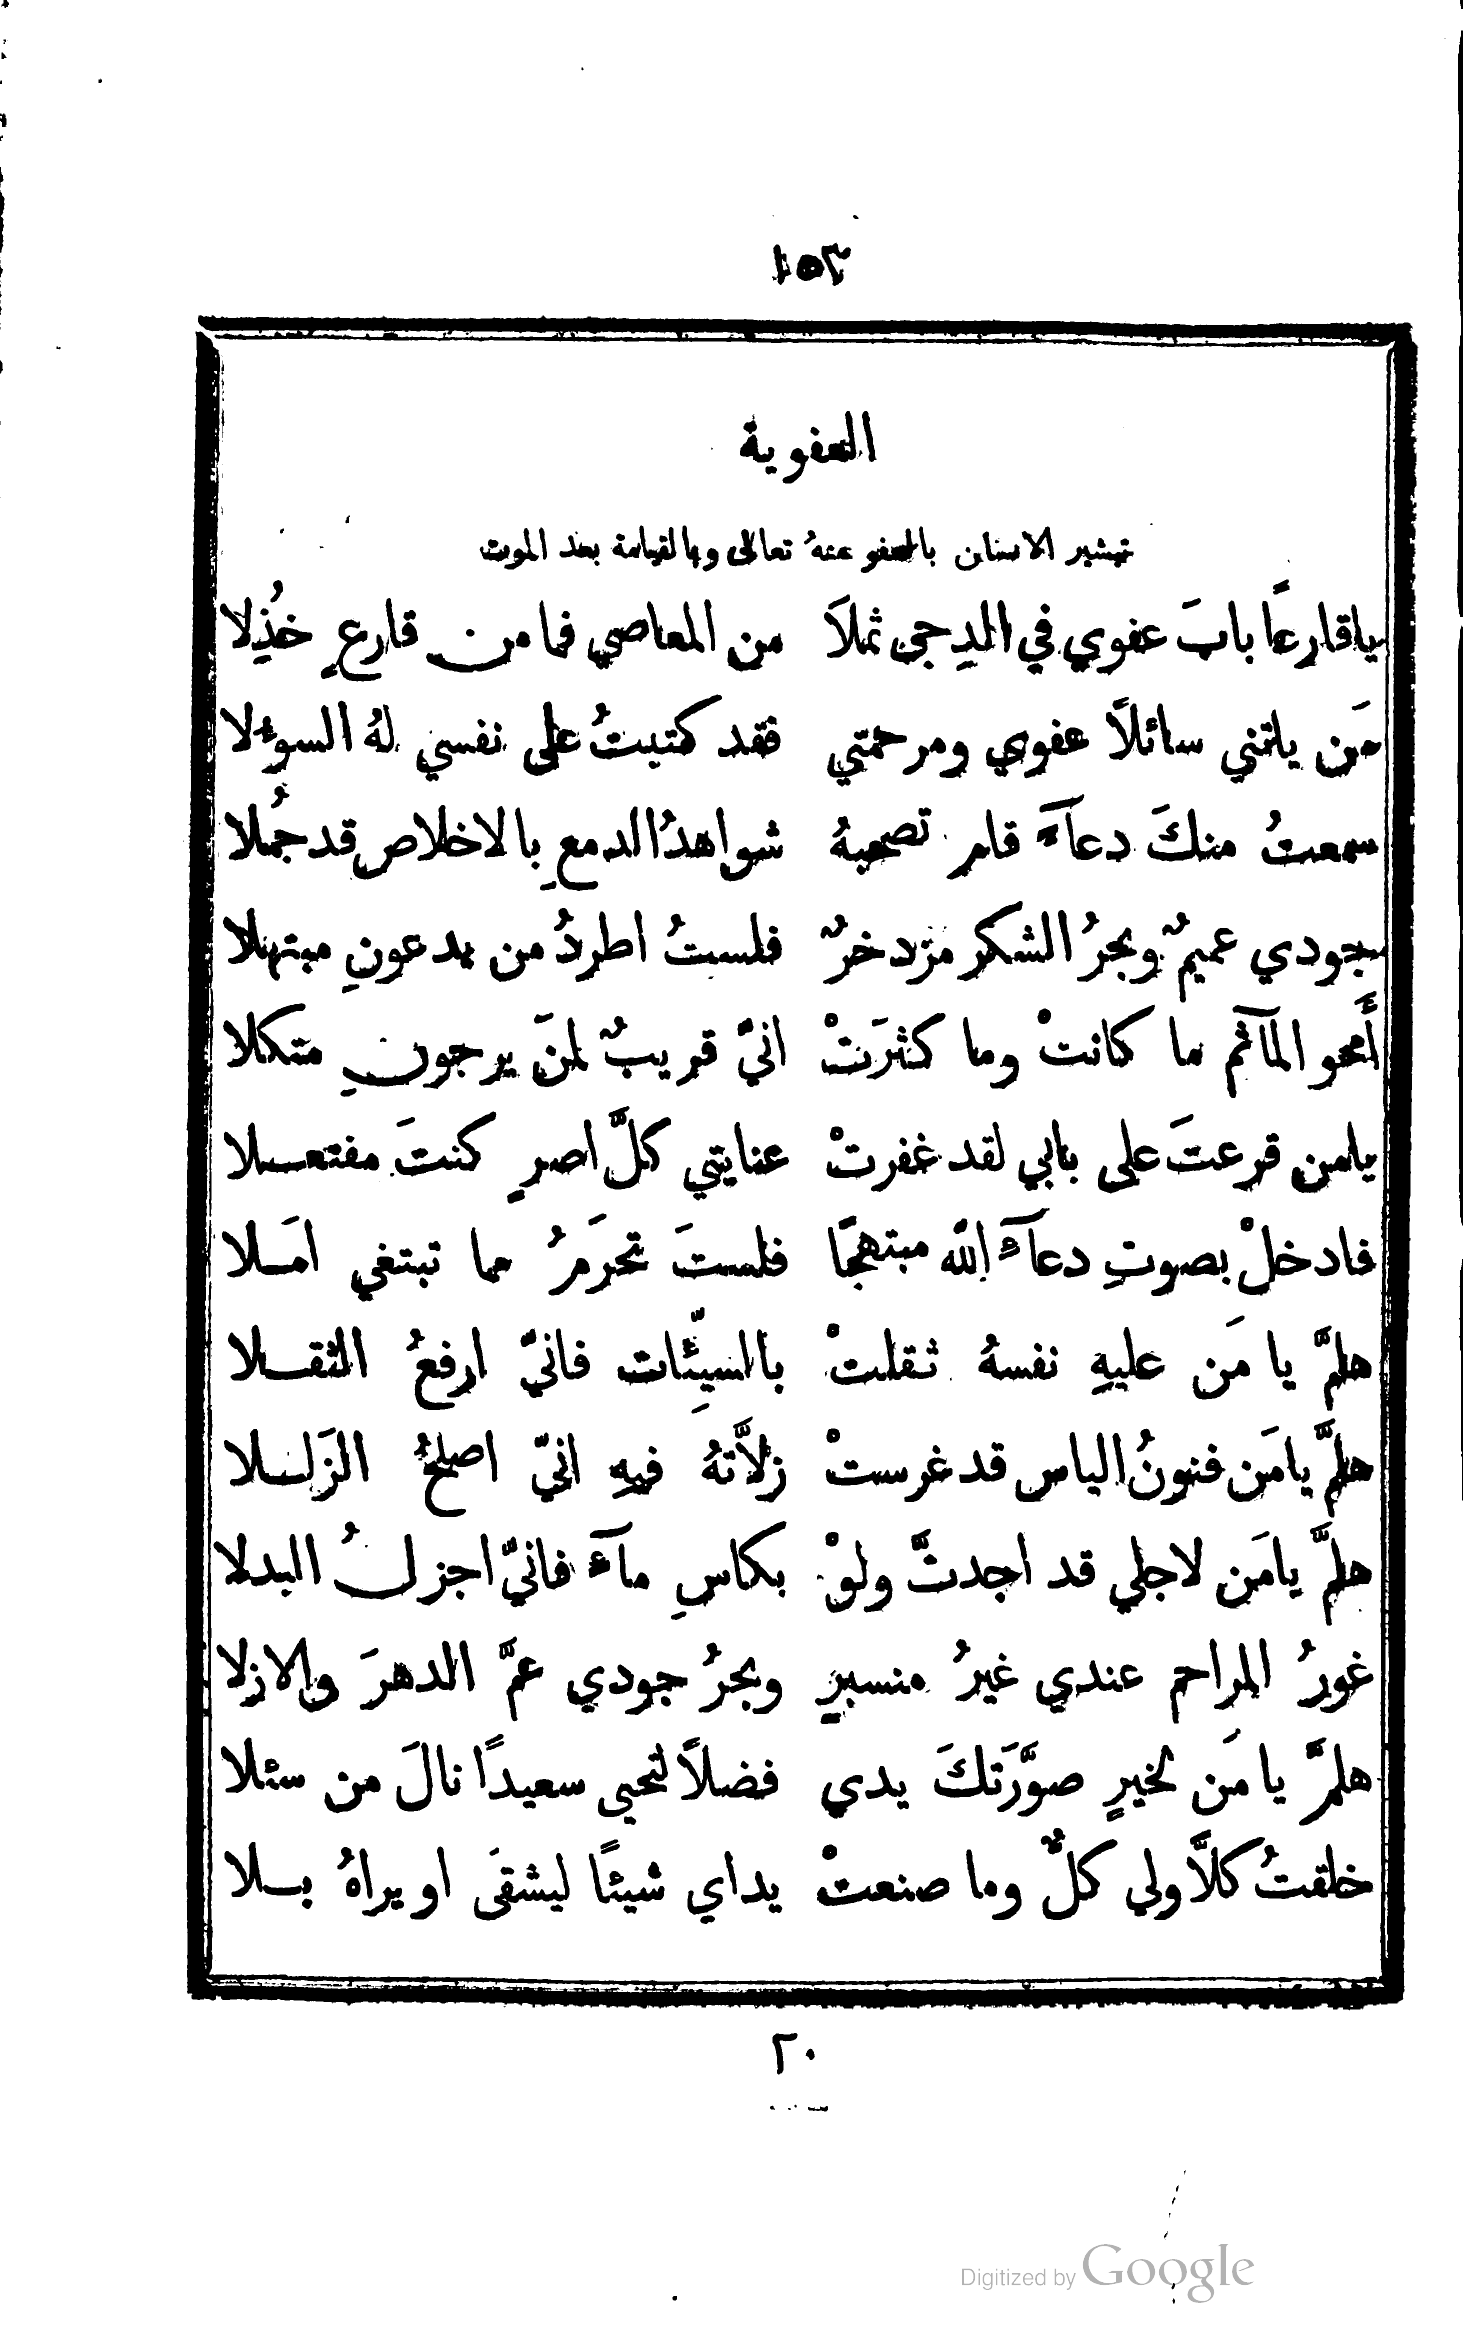 ١٥٣
العفوية
تبشير الانسان بالعفو عنهُ تعالى وبالقيامة بعد الموت
ياقارعًا بابَ عفوي في الدجى ثملاَ من المعاصي فما من قارعٍ خُذِلا
مَن يلتمني سائلاً عفوي ومرحمتي فقد كتبتُ على نفسي لهُ السوءلا
سمعتُ منكَ دعآءً قام تصحبهُ شواهدُ الدمعِ بالاخلاص قد جُملا
فجودي عميمٌ وبحرُ الشكر مزدخرٌ فلستُ اطردُ من يدعونِ مبتهلا
أَمحو المآثم ما كانتْ وما كثرَتْ انيّ قريبٌ لمَن يرجونِ متكلا
يامن قرعتَ على بابي لقد غفرتْ عنايتي كلَّ اصرٍ كنتَ مفتعلا
فادخلْ بصوتِ دعآءِ الله مبتهجًا فلستَ تحرَمُ مما تبتغي امَلا
هلمَّ يا مَن عليهِ نفسهُ ثقلتْ بالسيِّئات فانيّ ارفعُ الثقلا
هلمَّ يامَن فنونُ الياس قد غرستْ زلاَّتهُ فيهِ انيّ اصلحُ الزَللا
هلمَّ يامَن لاجلي قد اجدتَّ ولوْ بكاسِ مآءٍ فانيّ اجزلُ البدلا
غورُ المراحم عندي غيرُ منسبرٍ وبحرُ جودي عمَّ الدهرَ والازلا
هلمَّ يا مَن لخيرٍ صوَّرَتكَ يدي فضلاً لتحيى سعيدًا نالَ من سئلا
خلقتُ كلاًّ ولي كلٌّ وما صنعتْ يداي شيئًا ليشقَى او يراهُ بلا
٢٠
Digitized by Google